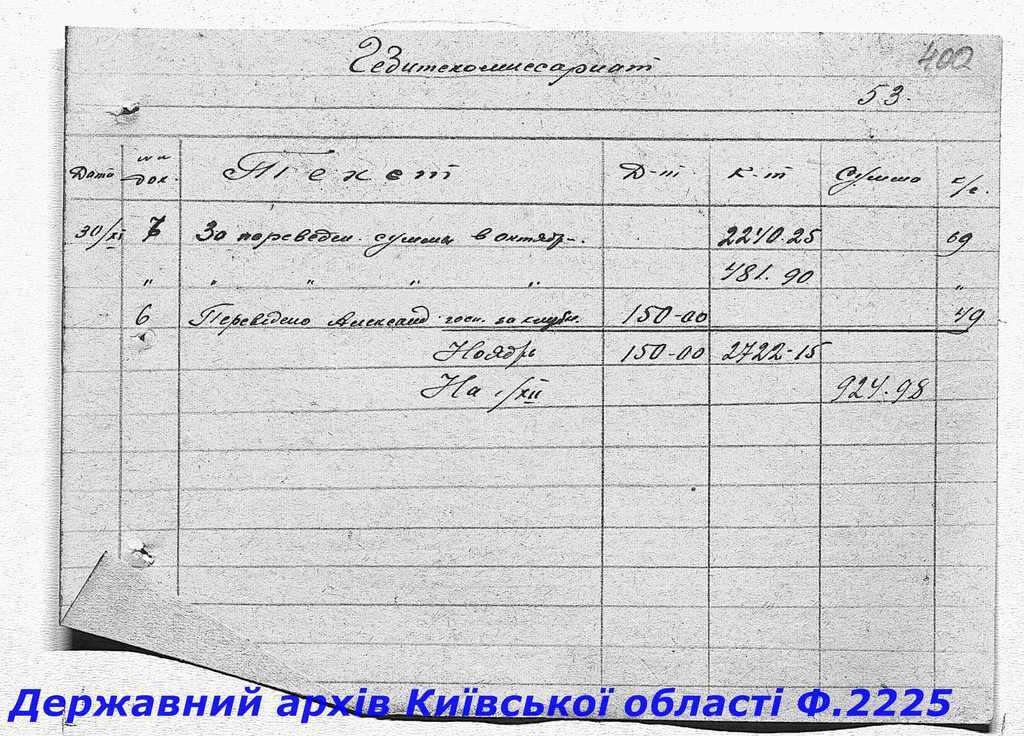 Гебитскомиссариат
400
53.
Дата № № док. Текст Д-т К-т Сумма с/с.
30/XI 7 За переведен. суммы в октябр-. 2240.25 69
" " " " " 481.90 "
6 Переведено Александ. госп. за клубн. 150-00 49
Ноябрь 150-00 2722-15
На 1/XII 924.98
Державний архів Київської області Ф.2225